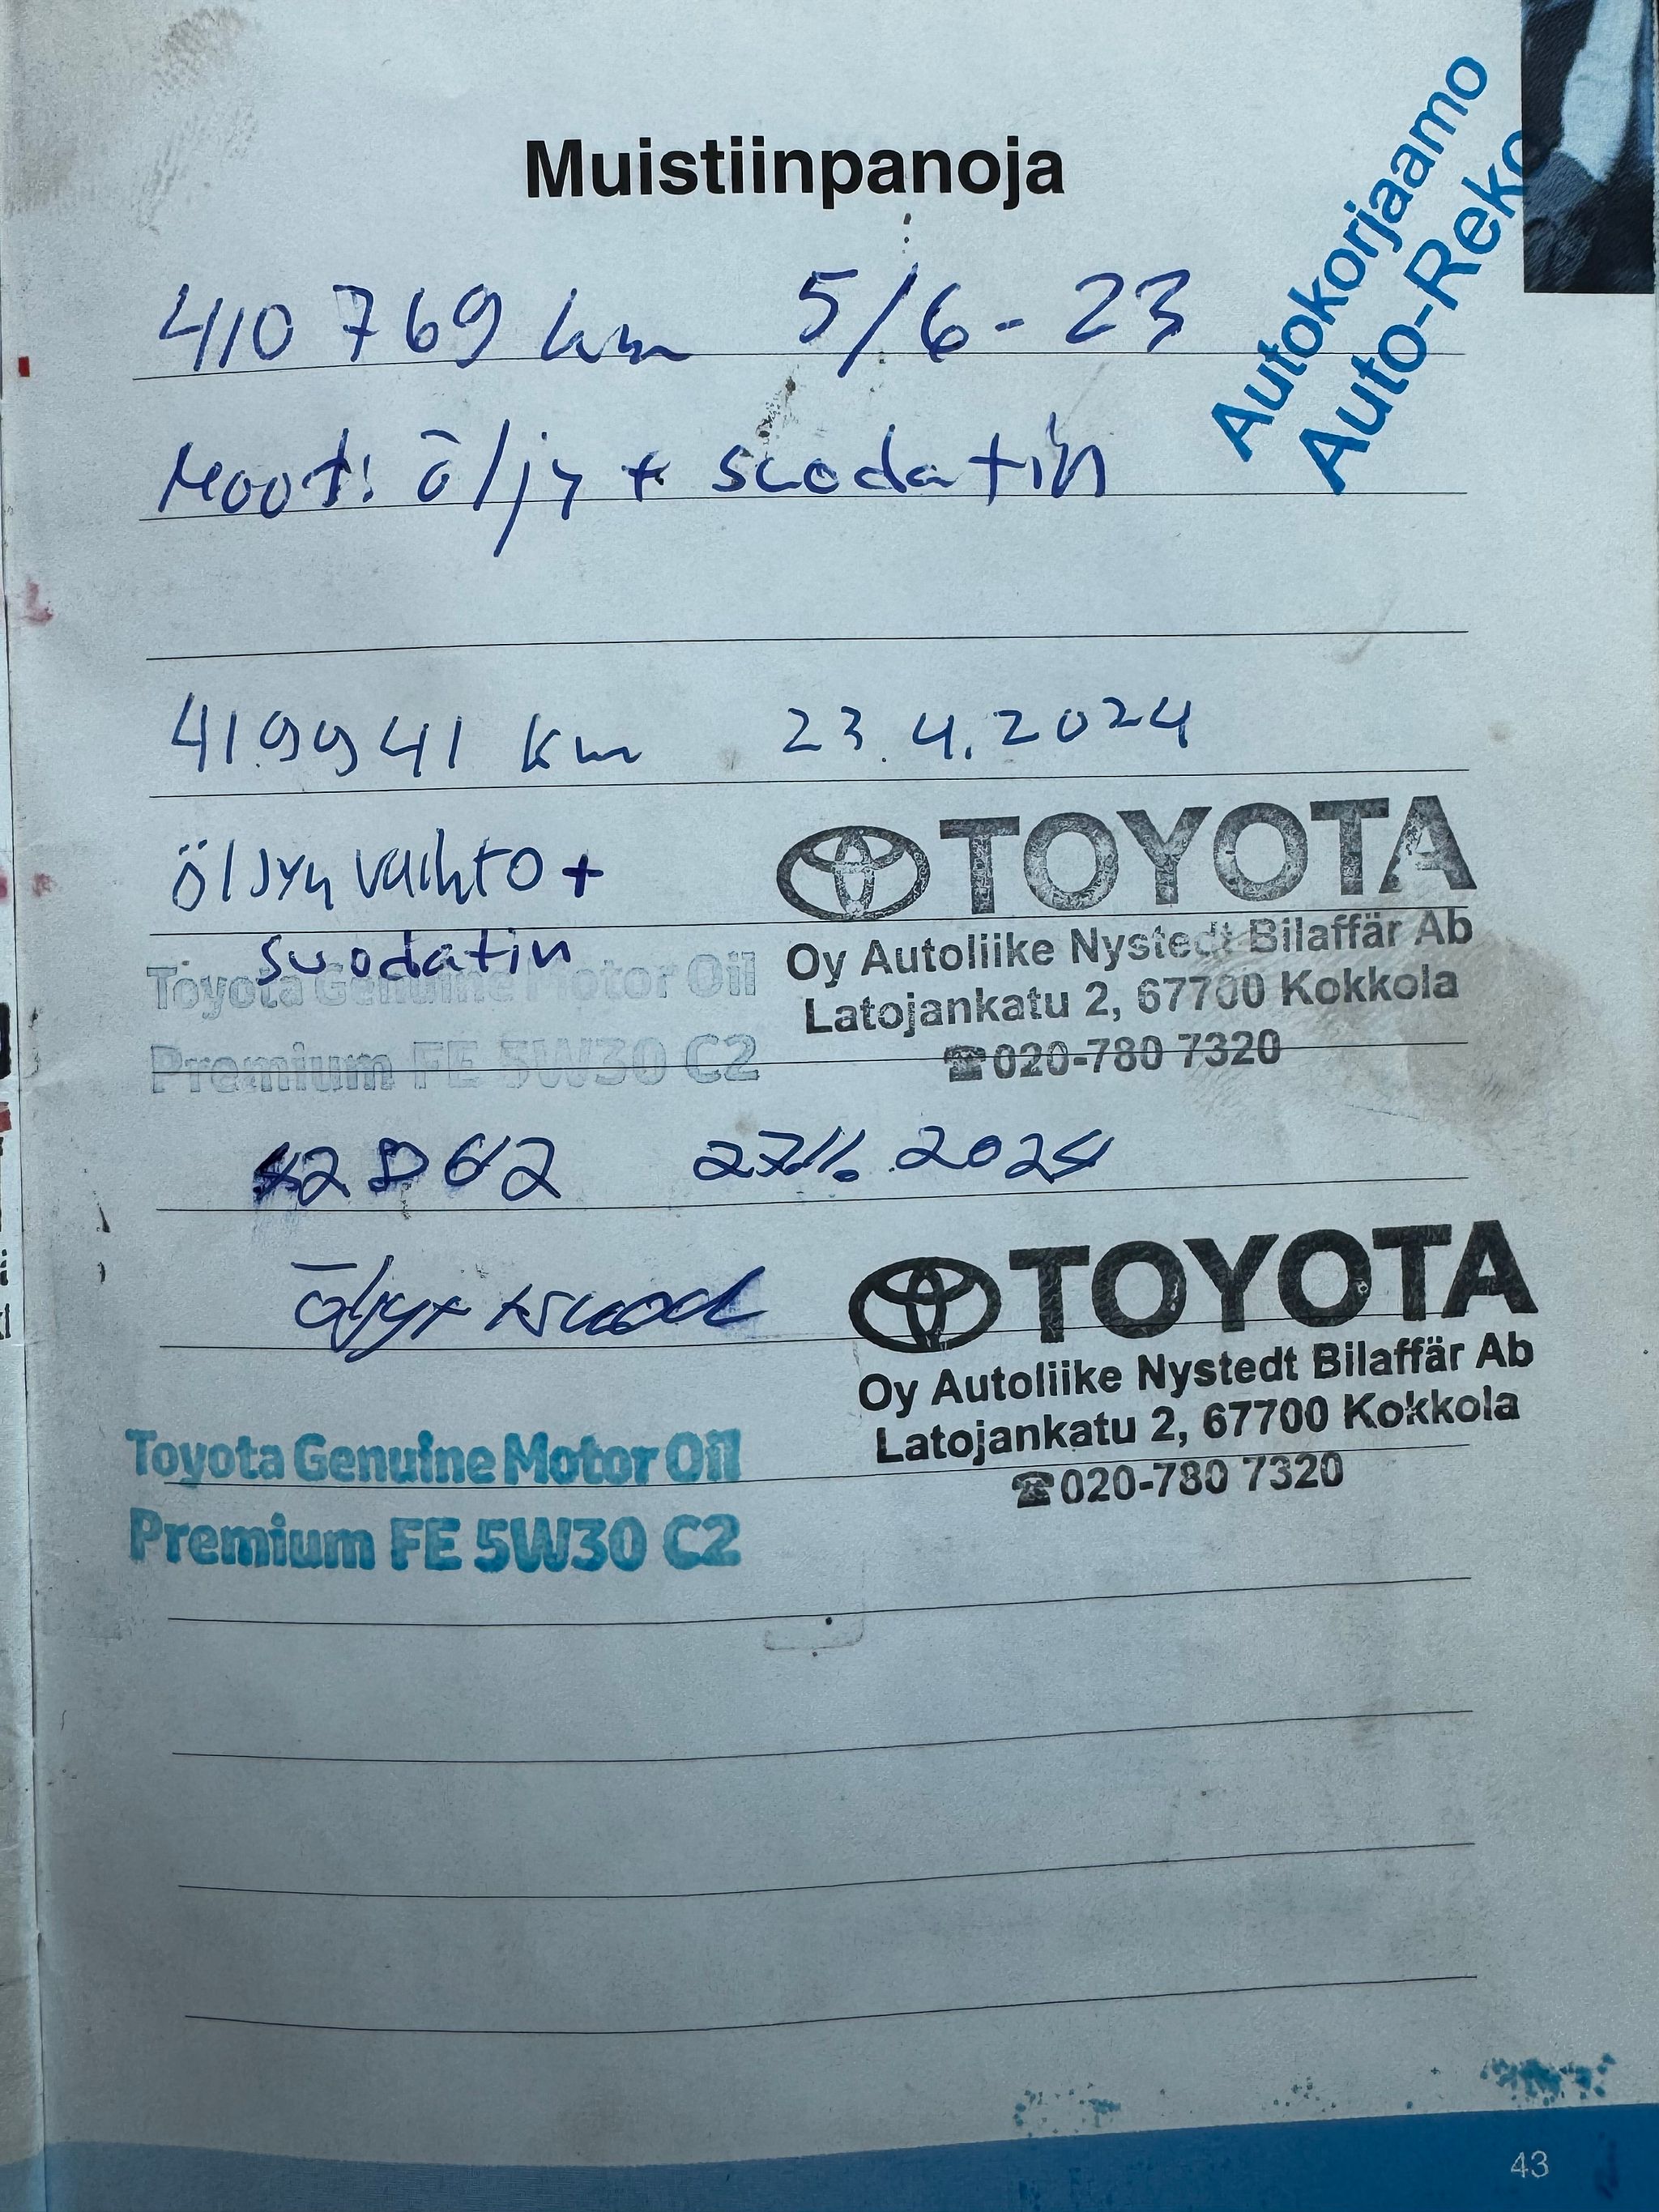 Muistiinpanoja
Autokorjaamo
Auto-Reko
410 769 km 5/6-23
Moot. öljy + suodatin
419941 km 23.4.2024
öljyn vaihto +
suodatin
TOYOTA
Oy Autoliike Nystedt Bilaffär Ab
Latojankatu 2, 67700 Kokkola
☎020-780 7320
Toyota Genuine Motor Oil
Premium FE 5W30 C2
2024
öljyt + suod
TOYOTA
Oy Autoliike Nystedt Bilaffär Ab
Latojankatu 2, 67700 Kokkola
☎020-780 7320
Toyota Genuine Motor Oil
Premium FE 5W30 C2
43